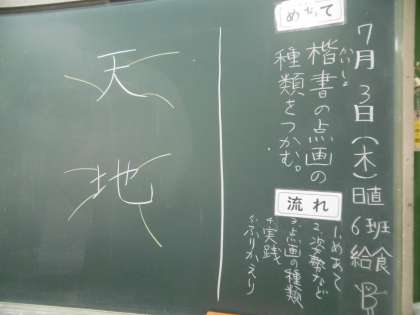 7月3日(木)日直6班給食B
めあて
楷書の点画の
かいしょ
種類をつかむ。
流れ
1.めあて
2.姿勢など
3.点画の種類
4.実践
5.ふりかえり
天地